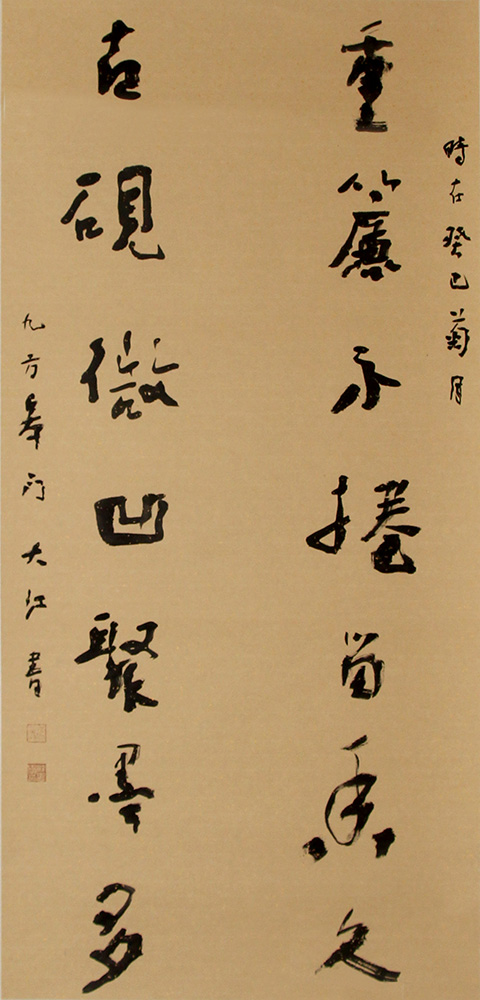 時在癸巳菊月
重簾不捲留香久
古硯微凹聚墨多
九方皋門大江書